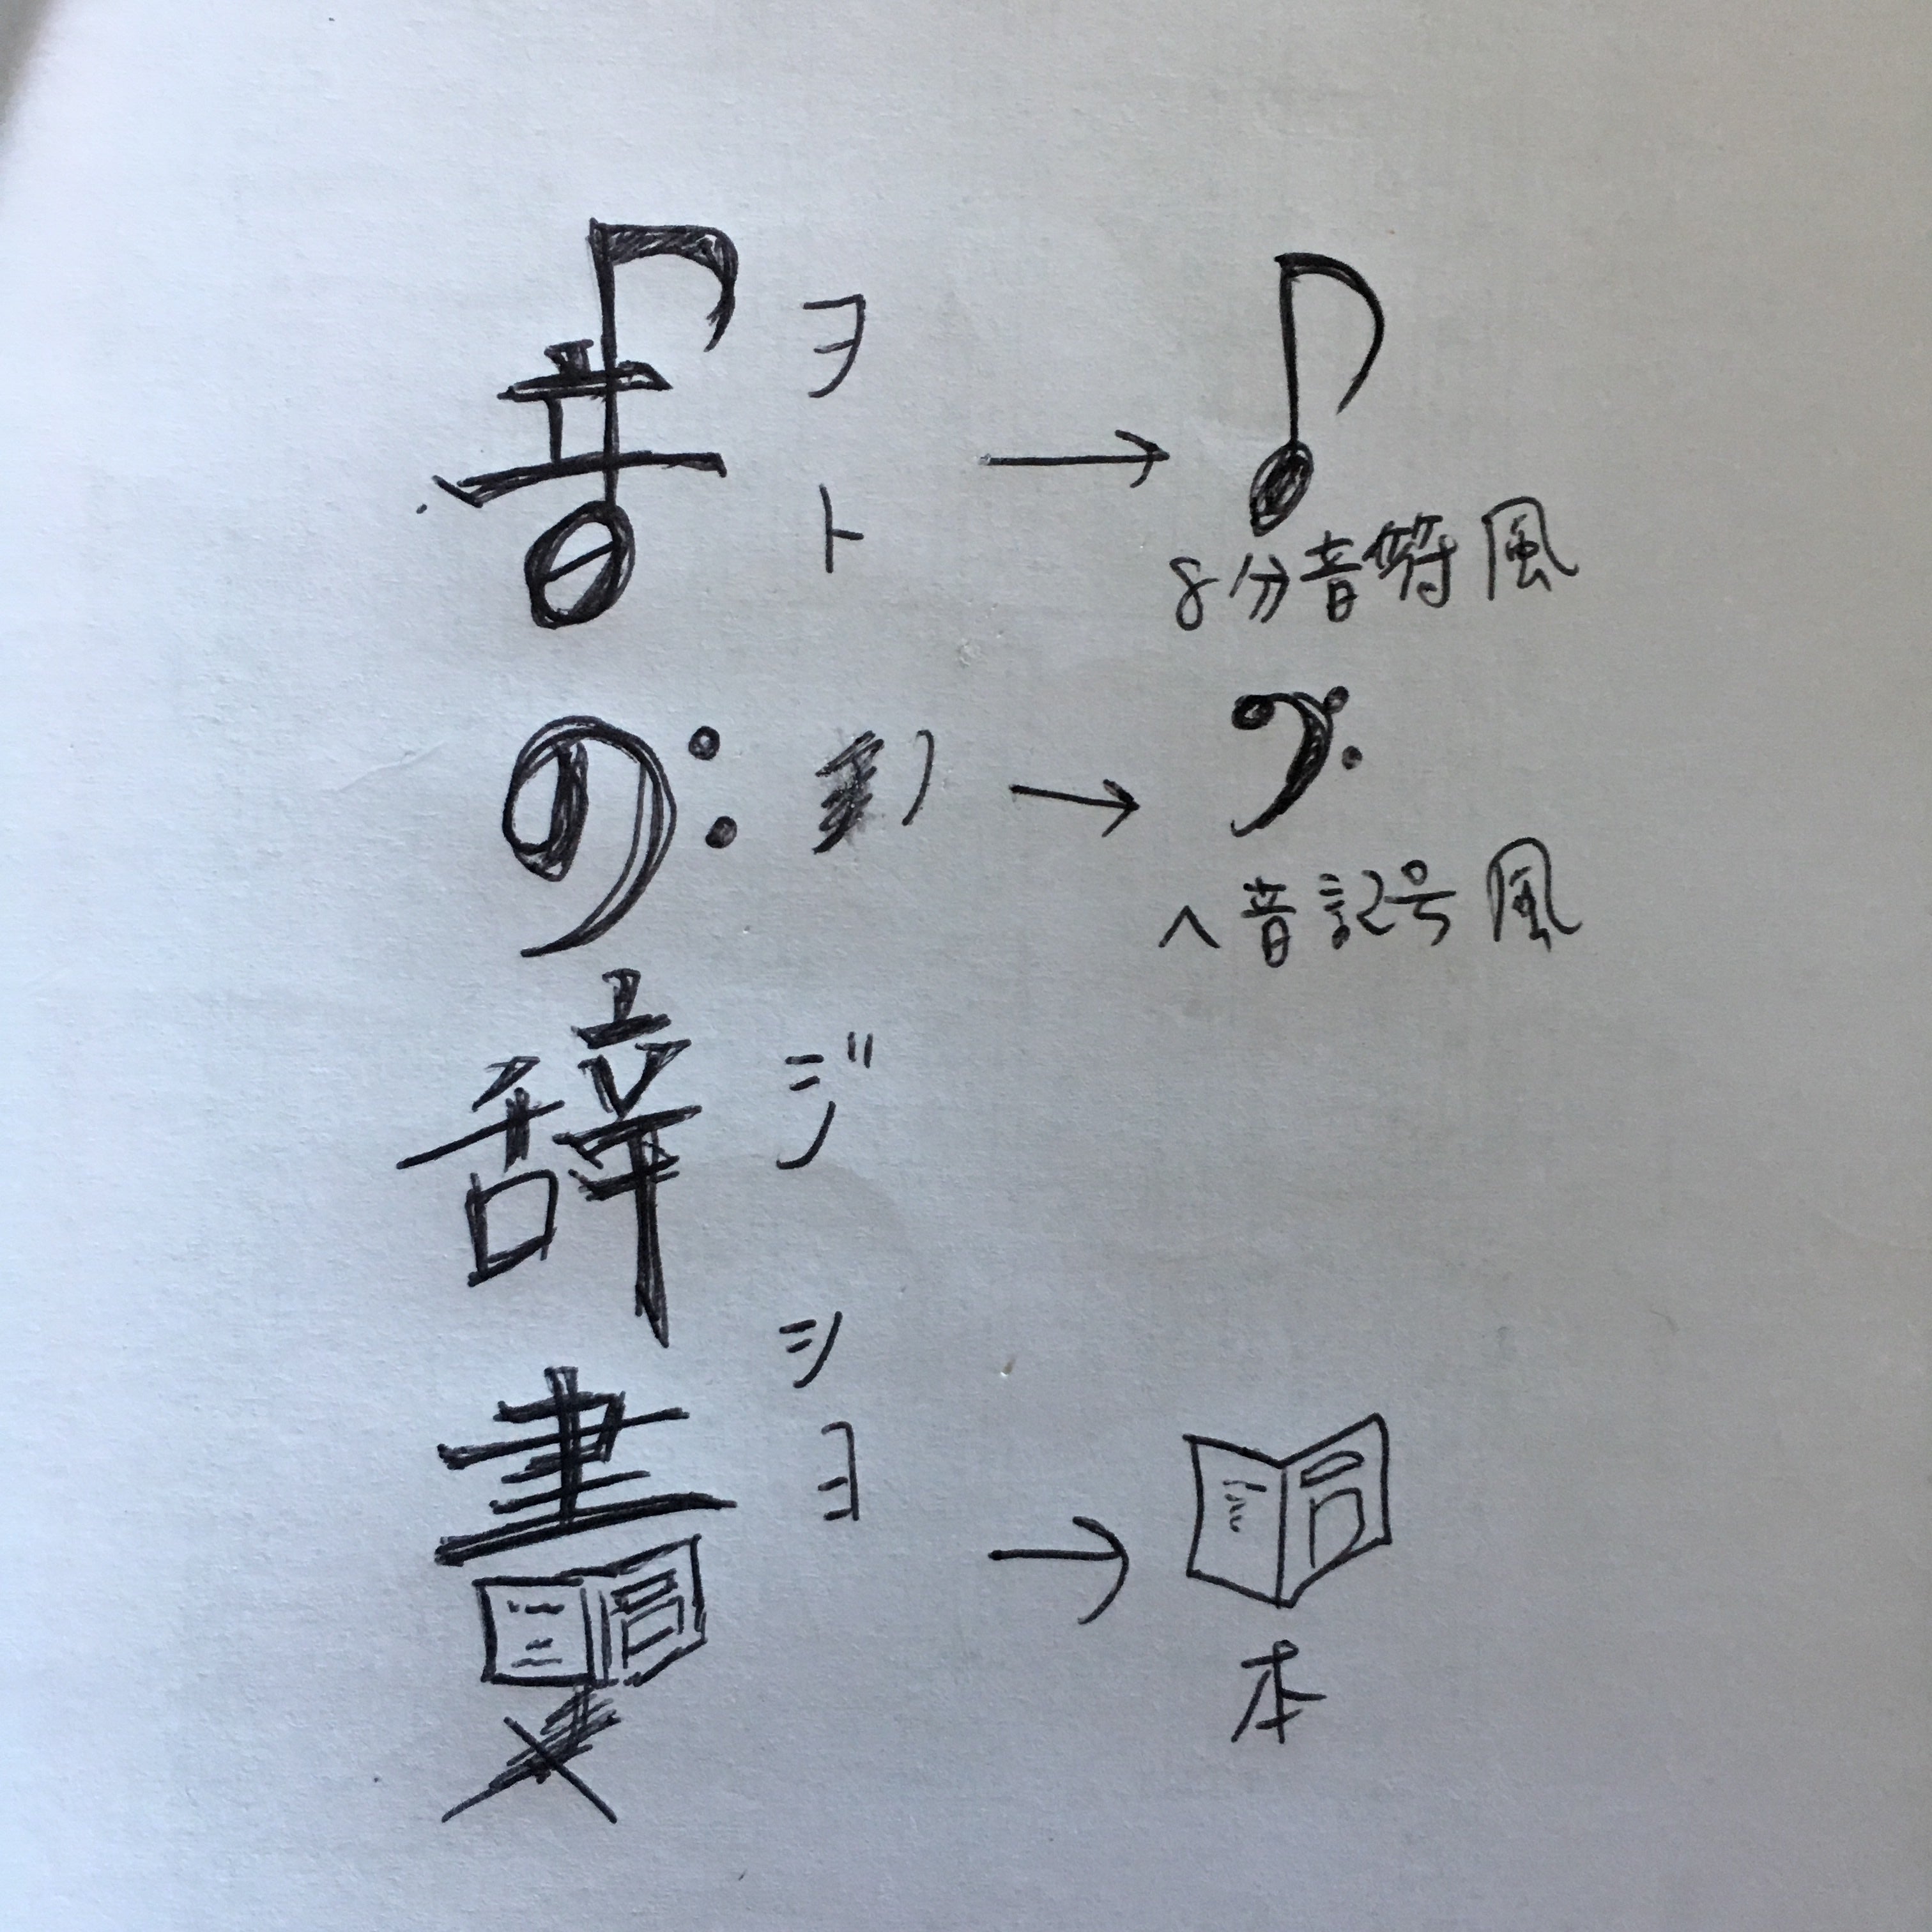 音の辞書
ヲト
ノ
ジ
ショ
8分音符風
ヘ音記号風
本